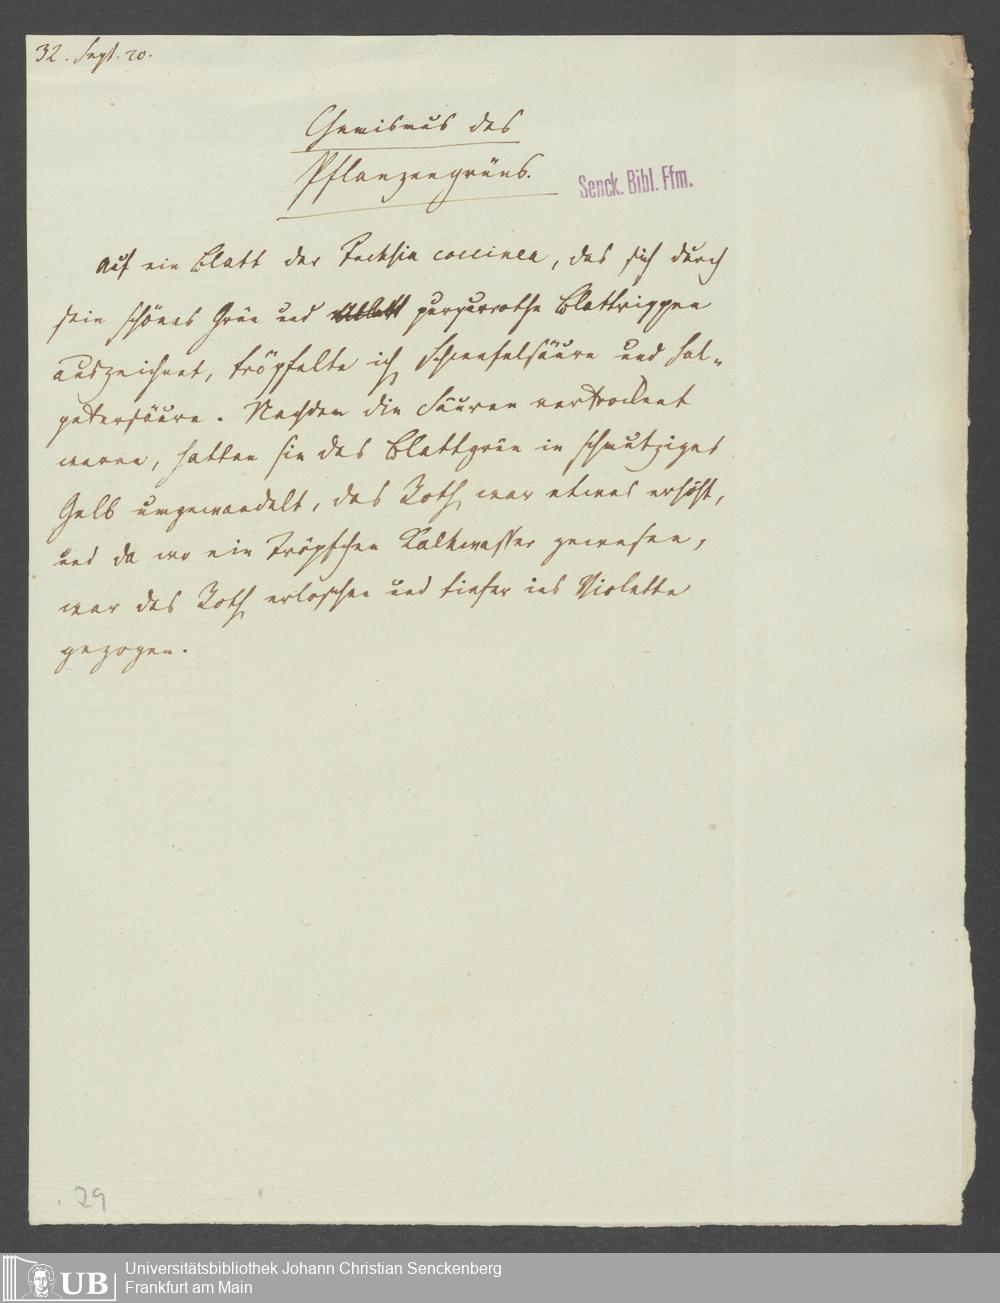 32. Sept. 20.
Chemismus des
Pflanzengrüns.
Senck. Bibl. Ffm.
Auf ein Blatt der Fuchsia coccinea, das sich durch
sein schönes Grün und purpurrothe Blattrippen
auszeichnet, tröpfelte ich Schwefelsäure und Sal-
petersäure. Nachdem die Säuren vertrocknet
waren, hatten sie das Blattgrün in schmutziges
Gelb umgewandelt, das Roth war etwas erhöht,
und da wo ein Tröpfchen Kalkwasser gewesen,
war das Roth erloschen und tiefer ins Violette
gezogen.
29
UB
Universitätsbibliothek Johann Christian Senckenberg
Frankfurt am Main